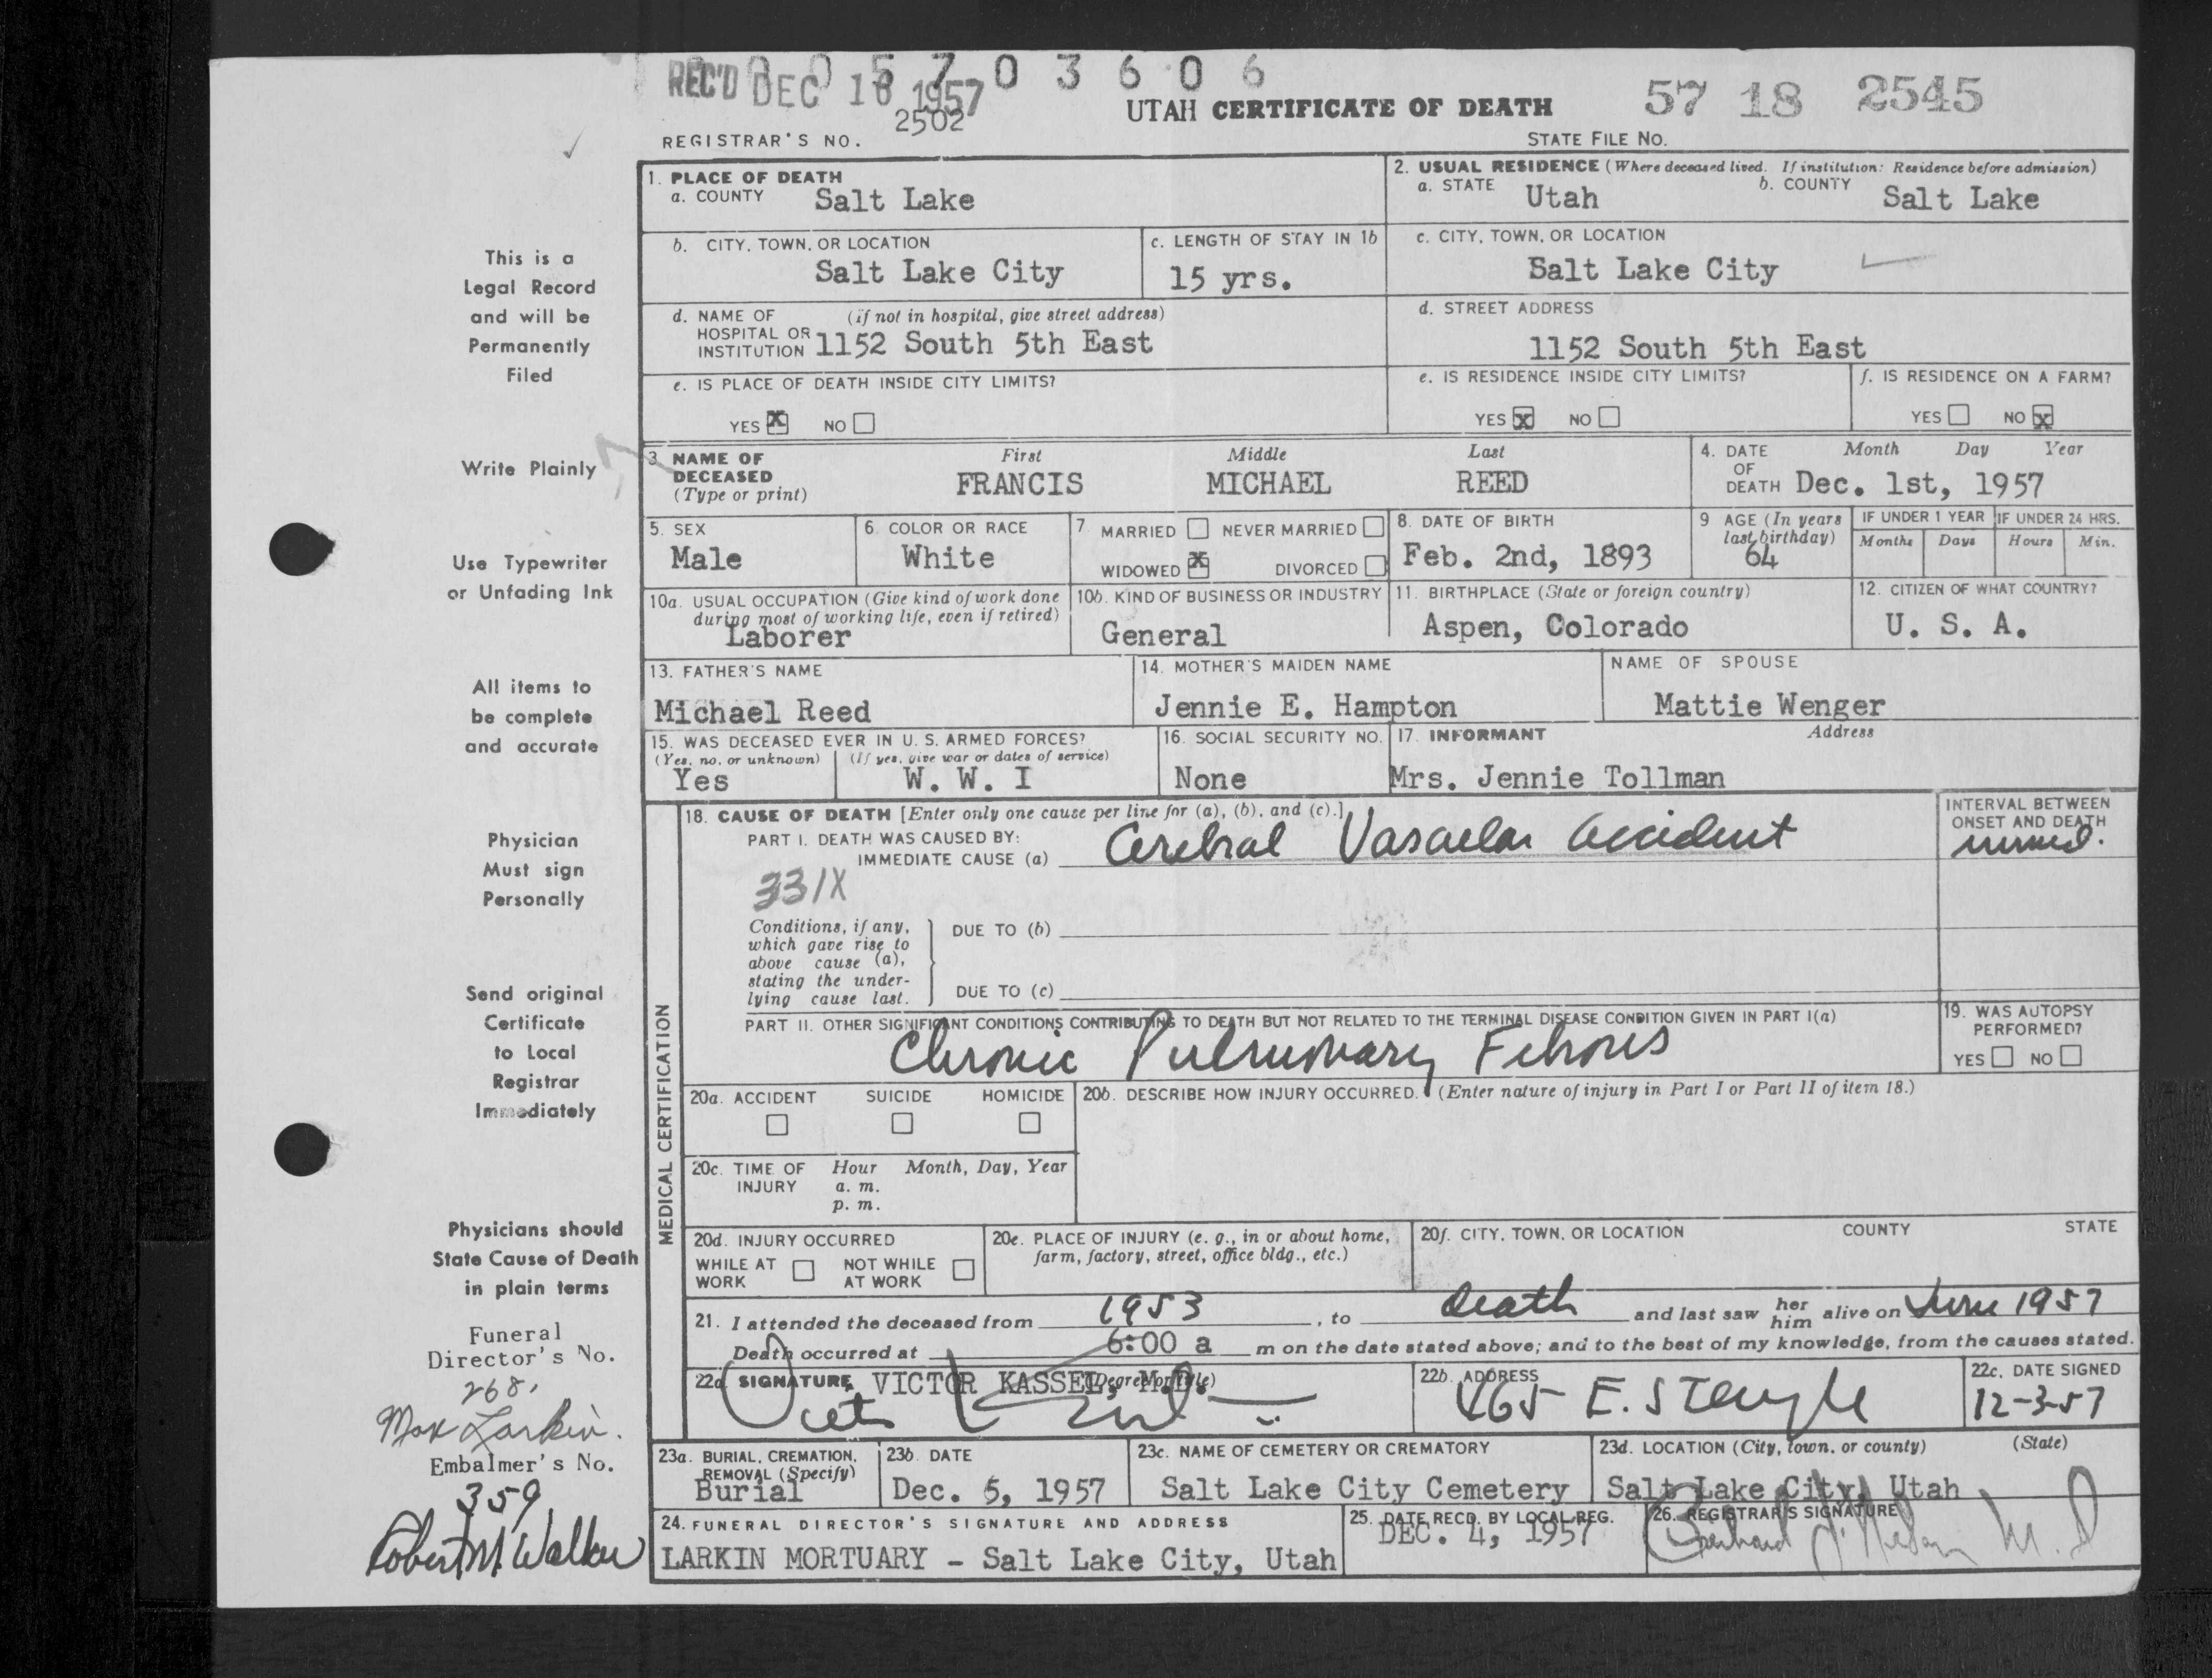 0 0 5 7 0 3 6 0 6
REC'D DEC 16 1957
2502
REGISTRAR'S NO.
UTAH CERTIFICATE OF DEATH
57 18 2545
STATE FILE NO.
This is a
Legal Record
and will be
Permanently
Filed
Write Plainly
Use Typewriter
or Unfading Ink
All items to
be complete
and accurate
Physician
Must sign
Personally
Send original
Certificate
to Local
Registrar
Immediately
Physicians should
State Cause of Death
in plain terms
Funeral
Director's No.
268.
Max Larkin.
Embalmer's No.
359
Robert M Walker
1. PLACE OF DEATH
a. COUNTY Salt Lake
2. USUAL RESIDENCE (Where deceased lived. If institution: Residence before admission)
a. STATE Utah b. COUNTY Salt Lake
b. CITY, TOWN, OR LOCATION
Salt Lake City
c. LENGTH OF STAY IN 1b
15 yrs.
c. CITY, TOWN, OR LOCATION
Salt Lake City
d. NAME OF (if not in hospital, give street address)
HOSPITAL OR
INSTITUTION 1152 South 5th East
d. STREET ADDRESS
1152 South 5th East
e. IS PLACE OF DEATH INSIDE CITY LIMITS?
YES X NO
e. IS RESIDENCE INSIDE CITY LIMITS?
YES X NO
f. IS RESIDENCE ON A FARM?
YES NO X
3. NAME OF First Middle Last
DECEASED
(Type or print) FRANCIS MICHAEL REED
4. DATE Month Day Year
OF
DEATH Dec. 1st, 1957
5. SEX
Male
6. COLOR OR RACE
White
7. MARRIED NEVER MARRIED
WIDOWED X DIVORCED
8. DATE OF BIRTH
Feb. 2nd, 1893
9 AGE (In years
last birthday)
64
IF UNDER 1 YEAR IF UNDER 24 HRS.
Months Days Hours Min.
10a. USUAL OCCUPATION (Give kind of work done
during most of working life, even if retired)
Laborer
10b. KIND OF BUSINESS OR INDUSTRY
General
11. BIRTHPLACE (State or foreign country)
Aspen, Colorado
12. CITIZEN OF WHAT COUNTRY?
U. S. A.
13. FATHER'S NAME
Michael Reed
14. MOTHER'S MAIDEN NAME
Jennie E. Hampton
NAME OF SPOUSE
Mattie Wenger
15. WAS DECEASED EVER IN U. S. ARMED FORCES?
(Yes, no, or unknown) (If yes, give war or dates of service)
Yes W. W. I
16. SOCIAL SECURITY NO.
None
17. INFORMANT Address
Mrs. Jennie Tollman
MEDICAL CERTIFICATION
18. CAUSE OF DEATH [Enter only one cause per line for (a), (b), and (c).]
PART I. DEATH WAS CAUSED BY:
IMMEDIATE CAUSE (a) Cerebral Vascular accident
INTERVAL BETWEEN
ONSET AND DEATH
331X
Conditions, if any,
which gave rise to
above cause (a),
stating the under-
lying cause last.
DUE TO (b)
DUE TO (c)
PART II. OTHER SIGNIFICANT CONDITIONS CONTRIBUTING TO DEATH BUT NOT RELATED TO THE TERMINAL DISEASE CONDITION GIVEN IN PART I(a)
Chronic Pulmonary Fibrosis
19. WAS AUTOPSY
PERFORMED?
YES NO
20a. ACCIDENT SUICIDE HOMICIDE
20b. DESCRIBE HOW INJURY OCCURRED. (Enter nature of injury in Part I or Part II of item 18.)
20c. TIME OF Hour Month, Day, Year
INJURY a. m.
p. m.
20d. INJURY OCCURRED
WHILE AT NOT WHILE
WORK AT WORK
20e. PLACE OF INJURY (e. g., in or about home,
farm, factory, street, office bldg., etc.)
20f. CITY, TOWN, OR LOCATION COUNTY STATE
21. I attended the deceased from 1953, to death and last saw her him alive on June 1957
Death occurred at 6:00 a m on the date stated above; and to the best of my knowledge, from the causes stated.
22a. SIGNATURE (Degree or title)
VICTOR KASSEL, M.D.
22b. ADDRESS
465 E. S Temple
22c. DATE SIGNED
12-3-57
23a. BURIAL, CREMATION,
REMOVAL (Specify)
Burial
23b. DATE
Dec. 5, 1957
23c. NAME OF CEMETERY OR CREMATORY
Salt Lake City Cemetery
23d. LOCATION (City, town, or county) (State)
Salt Lake City, Utah
24. FUNERAL DIRECTOR'S SIGNATURE AND ADDRESS
LARKIN MORTUARY - Salt Lake City, Utah
25. DATE RECD. BY LOCAL REG.
DEC. 4, 1957
26. REGISTRAR'S SIGNATURE